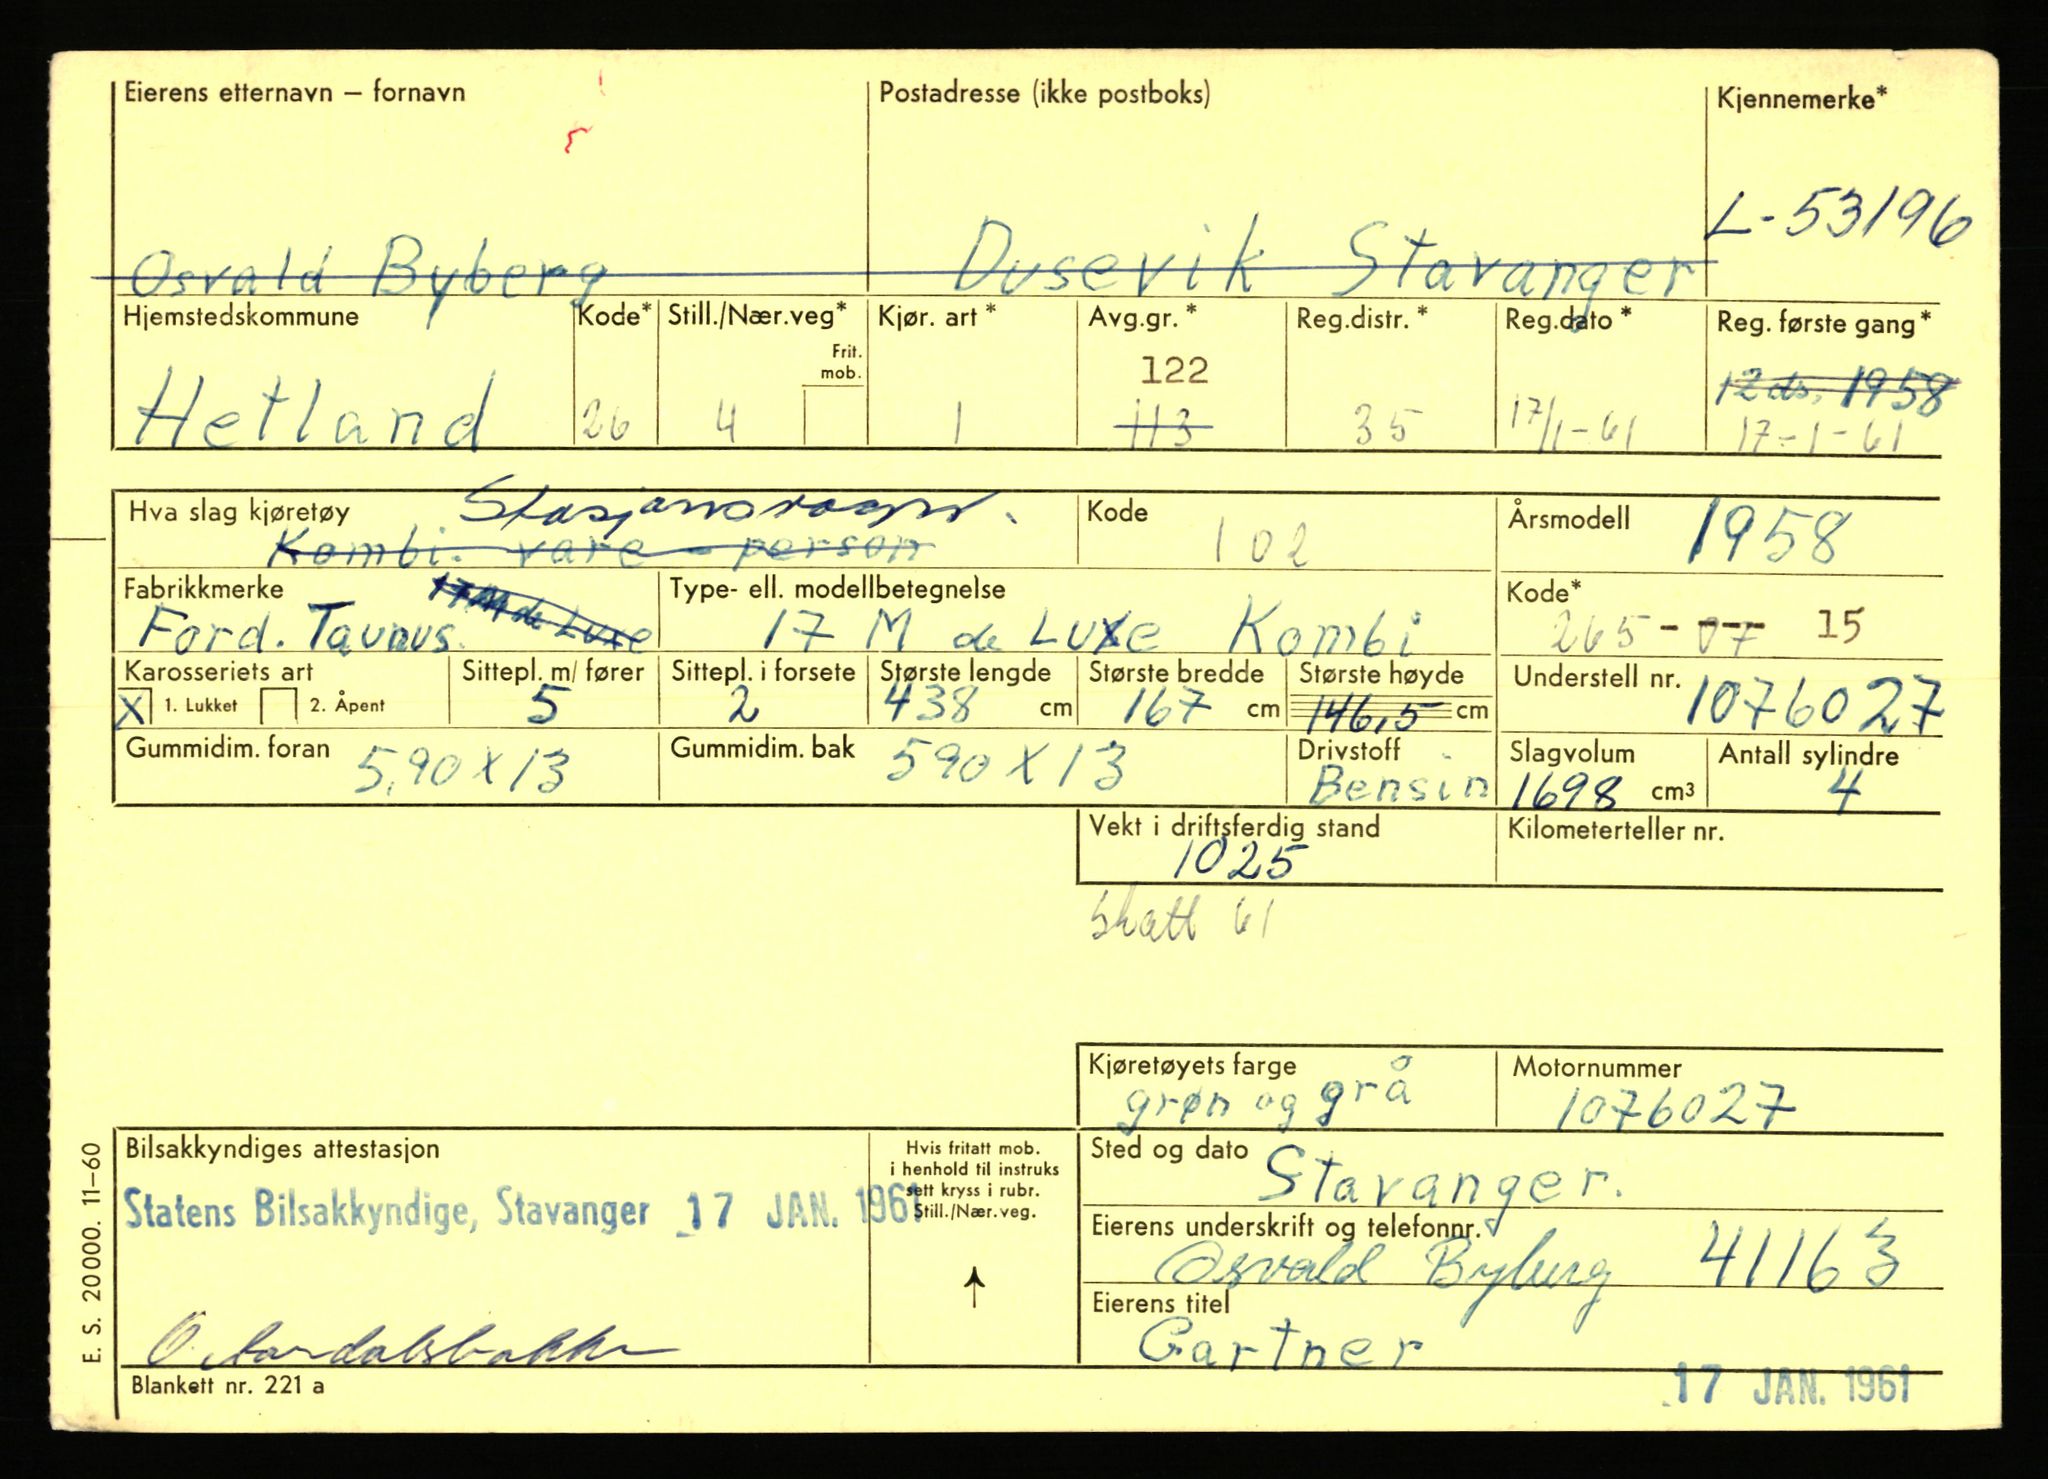 Eierens etternavn – fornavn Postadresse (ikke postboks) Kjennemerke*
L-53196
Osvald Byberg Dusevik Stavanger
Hjemstedskommune Kode* Still./Nær.veg* Kjør. art* Avg.gr.* Reg.distr.* Reg.dato* Reg. første gang*
Frit.
mob.
122
12 ds. 1958
Hetland 26 4 1 113 35 17/1-61 17-1-61
Hva slag kjøretøy Stasjonsvogn. Kode 102 Årsmodell 1958
Kombi. vare-person
Fabrikkmerke 17M de Luxe Type- ell. modellbetegnelse Kode*
Ford. Taunus. 17 M de Luxe Kombi 265-07 15
Karosseriets art Sittepl. m/ fører Sittepl. i forsete Største lengde Største bredde Største høyde Understell nr.
X 1. Lukket 2. Åpent 5 2 438 cm 167 cm 146,5 cm 1076027
Gummidim. foran 5,90 x 13 Gummidim. bak 590 x 13 Drivstoff Slagvolum Antall sylindre
Bensin 1698 cm³ 4
Vekt i driftsferdig stand Kilometerteller nr.
1025
skatt 61
Kjøretøyets farge Motornummer
grøn og grå 1076027
Bilsakkyndiges attestasjon Hvis fritatt mob.
i henhold til instruks
sett kryss i rubr.
Still./Nær.veg.
↑
Sted og dato Stavanger.
Statens Bilsakkyndige, Stavanger 17 JAN. 1961
Eierens underskrift og telefonnr.
Osvald Byberg 41163
Eierens titel
Gartner
Blankett nr. 221 a
17 JAN. 1961
E. S. 20000. 11–60